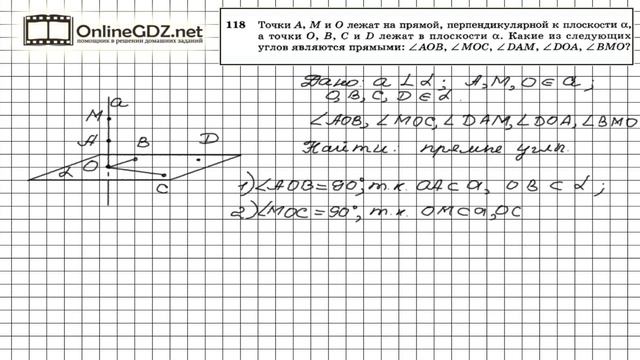 OnlineGDZ.net
помощник в решении домашних заданий
118 Точки A, M и O лежат на прямой, перпендикулярной к плоскости α,
а точки O, B, C и D лежат в плоскости α. Какие из следующих
углов являются прямыми: ∠AOB, ∠MOC, ∠DAM, ∠DOA, ∠BMO?
Дано: a ⊥ α; A, M, O ∈ a;
O, B, C, D ∈ α.
∠AOB, ∠MOC, ∠DAM, ∠DOA, ∠BMO
Найти: прямые углы.
1) ∠AOB = 90°, т.к. OA ⊂ a, OB ⊂ α;
2) ∠MOC = 90°, т.к. OM ⊂ a, OC
a
M
A
B
D
O
α
C